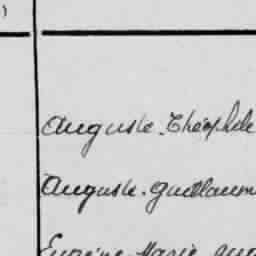 Auguste. Théophile
Auguste. Guillaum
Eugène Marie Aug